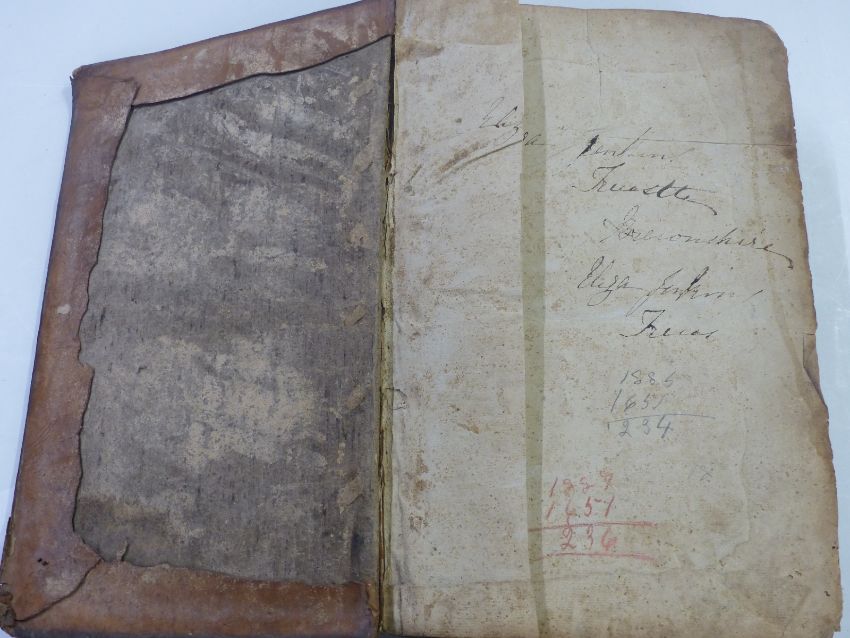 Eliza Jenkins
Trecastle
Breconshire
Eliza Jenkins
Trecas
1885
1651
234
1651
236